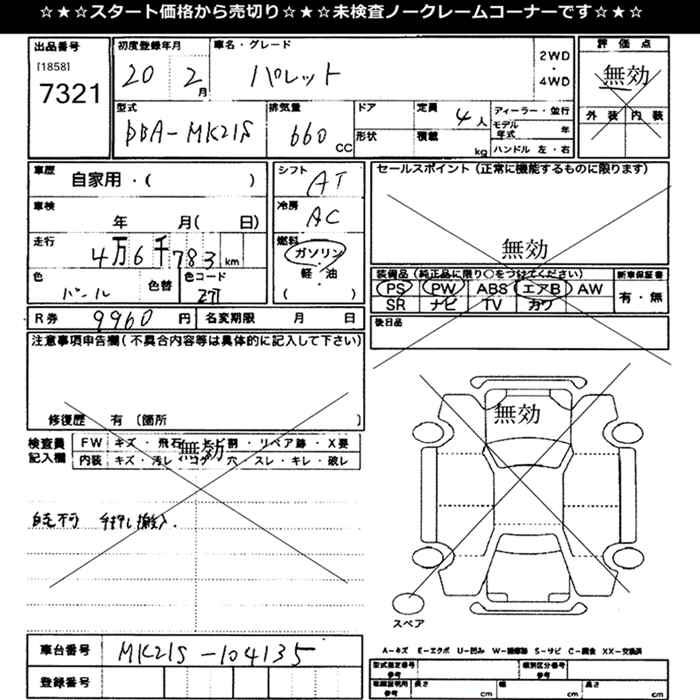 ☆★☆★スタート価格から売切り☆★☆★未検査ノークレームコーナーです☆★☆
出品番号
[1858]
7321
初度登録年月
20 2月
車名・グレード
パレット
2WD
・
4WD
評価点
無効
外装 内装
型式
DBA-MK21S
排気量
660 CC
ドア
形状
定員
4人
積載
kg
ディーラー・並行
モデル年式 年
ハンドル 左・右
車歴
自家用・( )
車検
年 月( 日)
走行
4万6千783 km
色
パール
色替
色コード
ZJ7
シフト
AT
冷房
AC
燃料
ガソリン
軽・油
・
( )
セールスポイント(正常に機能するものに限ります)
無効
装備品(純正品に限り○をつけてください)
PS PW ABS エアB AW
SR ナビ TV カワ
新車保証書
有・無
R券 9960円
名変期限 月 日
後日品
注意事項申告欄(不具合内容等は具体的に記入して下さい)
修復歴 有 〔箇所 〕
検査員記入欄
FW キズ・飛石 割・リペア跡・X要
内装 キズ・汚レ・コゲ・穴・スレ・キレ・破レ
無効
自走不可 手押し搬入.
無効
スペア
車台番号
MK21S-104135
登録番号
A-キズ E-エクボ U-凹み W-補修跡 S-サビ C-腐食 XX-交換済
型式指定番号
参考
類別区分番号
参考
車検証明用
参考
長さ cm
幅 cm
高さ cm